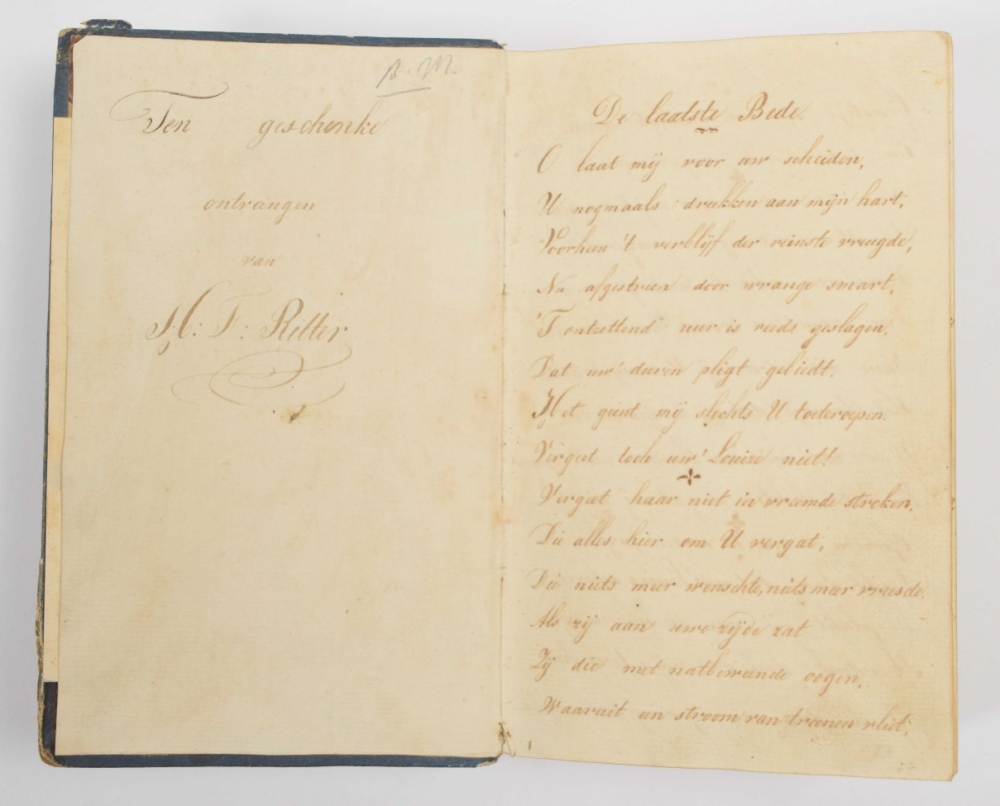 Ten geschenke
ontvangen
van
H: F: Ritter
De laatste Bede.
O laat mij voor uw scheiden,
U nogmaals drukken aan mijn hart,
Voorheen 't verblijf der reinste vreugde,
Nu afgestreen door wrange smart.
'T ontzettend uur is reeds geslagen.
Dat uw' duren pligt gebiedt.
Het gunt mij slechts U toeteroepen.
Vergeet toch uw' Louize niet!
Vergeet haar niet in vreemde streken,
Die alles hier om U vergat,
Die niets meer wenschte, niets meer vreesde.
Als zij aan uwe zijde zat
Zij die met natbeweende oogen,
Waaruit een stroom van tranen vliet,